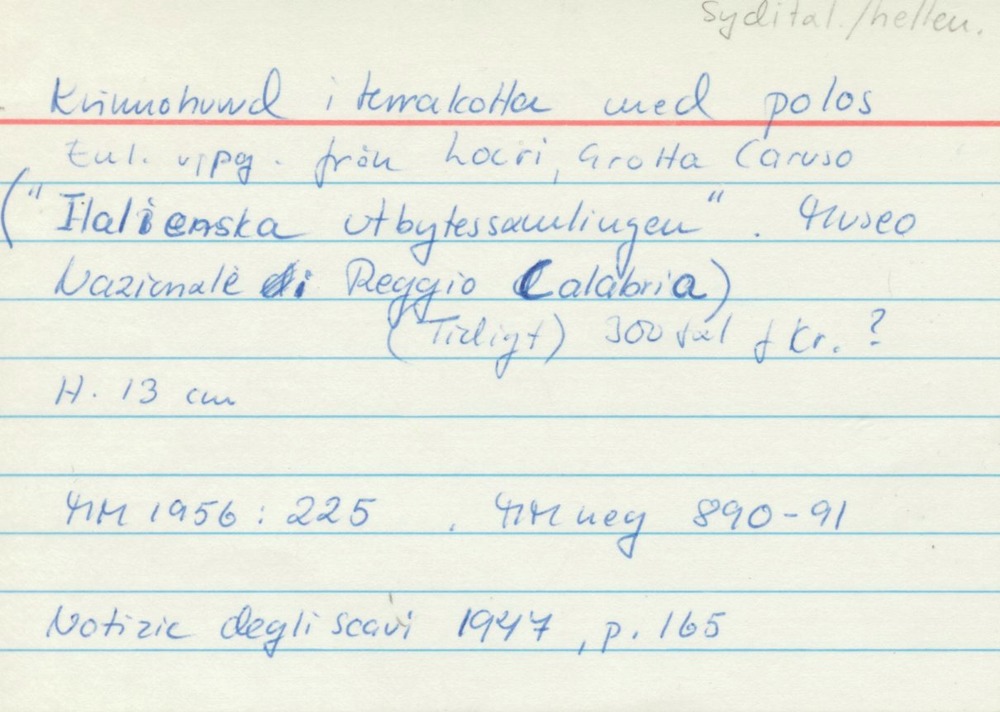 Sydital./hellen.
Kvinnohuvud i terrakotta med polos
Enl. uppg. från Locri, Grotta Caruso
("Italienska utbytessamlingen". Museo
Nazionale di Reggio Calabria)
(Tidigt) 300 tal f Kr. ?
H. 13 cm
MM 1956: 225 . MM neg 890-91
Notizie degli scavi 1947, p. 165